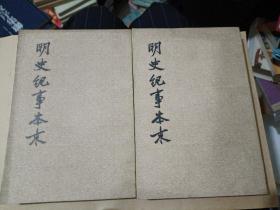 明史纪事本末
明史纪事本末